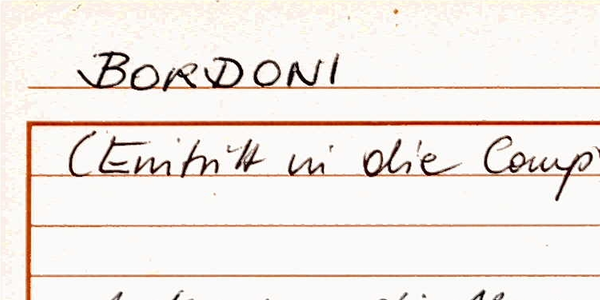 BORDONI
(Eintritt in die Comp